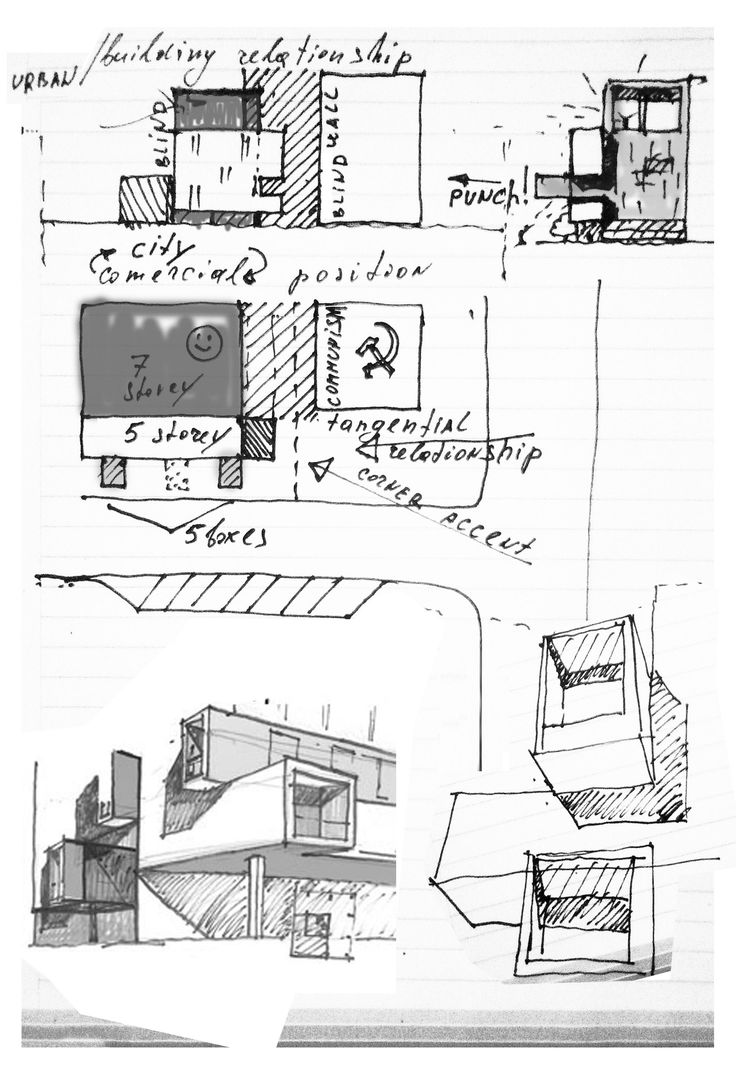 URBAN/building relationship
BLIND
BLIND WALL
PUNCH!
city
comercial position
7
storey
COMMUNISM
5 storey
tangential
relationship
CORNER ACCENT
5 boxes